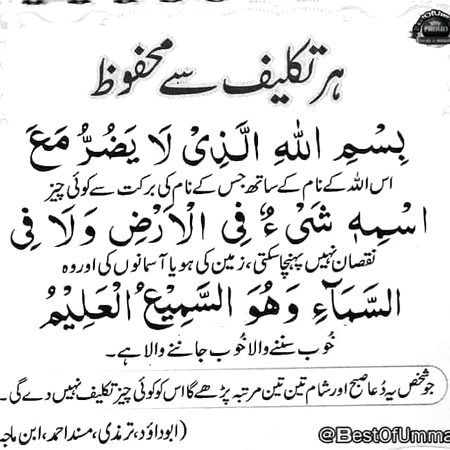 ہر تکلیف سے محفوظ
بِسْمِ اللهِ الَّذِیْ لَا یَضُرُّ مَعَ
اس اللہ کے نام کے ساتھ جس کے نام کی برکت سے کوئی چیز
اسْمِهٖ شَیْءٌ فِی الْاَرْضِ وَلَا فِی
نقصان نہیں پہنچا سکتی، زمین کی ہو یا آسمانوں کی اور وہ
السَّمَآءِ وَهُوَ السَّمِیْعُ الْعَلِیْمُ
خُوب سننے والا خُوب جاننے والا ہے۔
جو شخص یہ دُعا صبح اور شام تین تین مرتبہ پڑھے گا اس کو کوئی چیز تکلیف نہیں دے گی۔
(ابوداؤد، ترمذی، مسند احمد، ابن ماجہ
@BestOfUmma